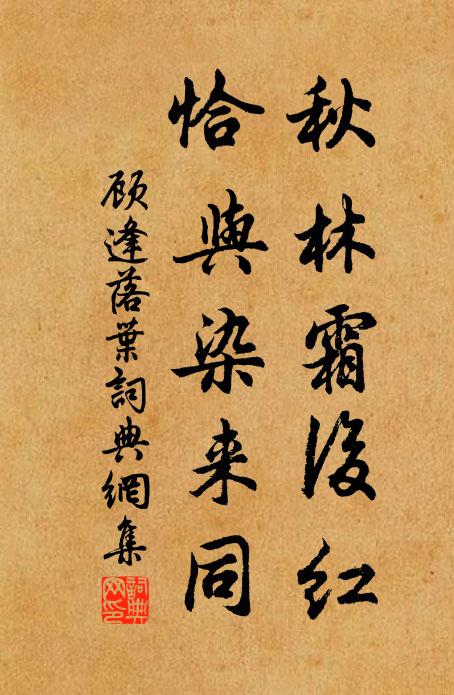 秋林霜後紅
恰與染来同
顾逢落葉詞典網集
詞典網印